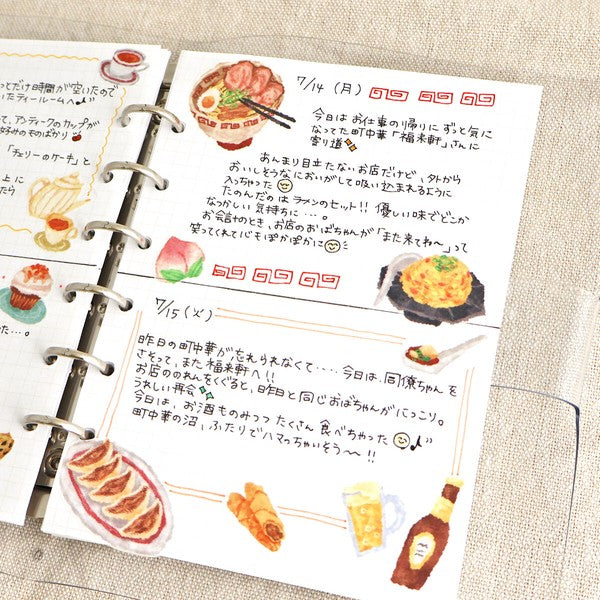 っとだけ時間が空いたので
いたティールームへ♪
て、アンティークのカップが
好みのものばかり
「チェリーのケーキ」と
上に
たら
た…。
7/14（月）
今日はお仕事の帰りにずっと気に
なってた町中華「福来軒」さんに
寄り道
あんまり目立たないお店だけど、外から
おいしそうなにおいがして吸い込まれるように
入っちゃった
たのんだのはラーメンのセット!! 優しい味でどこか
なつかしい気持ちに…。
お会計のとき、お店のおばちゃんが「また来てね〜」って
笑ってくれて心もぽかぽかに
7/15（火）
昨日の町中華が忘れられなくて‥‥今日は、同僚ちゃんを
さそって、また福来軒へ!!
お店ののれんをくぐると、昨日と同じおばちゃんがにっこり。
うれしい再会
今日は、お酒ものみつつたくさん食べちゃった♪
町中華の沼、ふたりでハマっちゃいそう〜!!